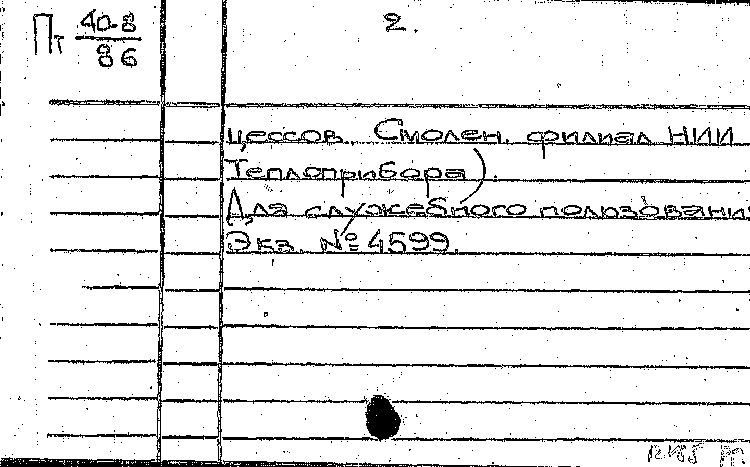 Пт 40-8
86
2.
цессов. Смолен. филиал НИИ
Теплоприбора).
Для служебного пользовани
Экз. № 4599.